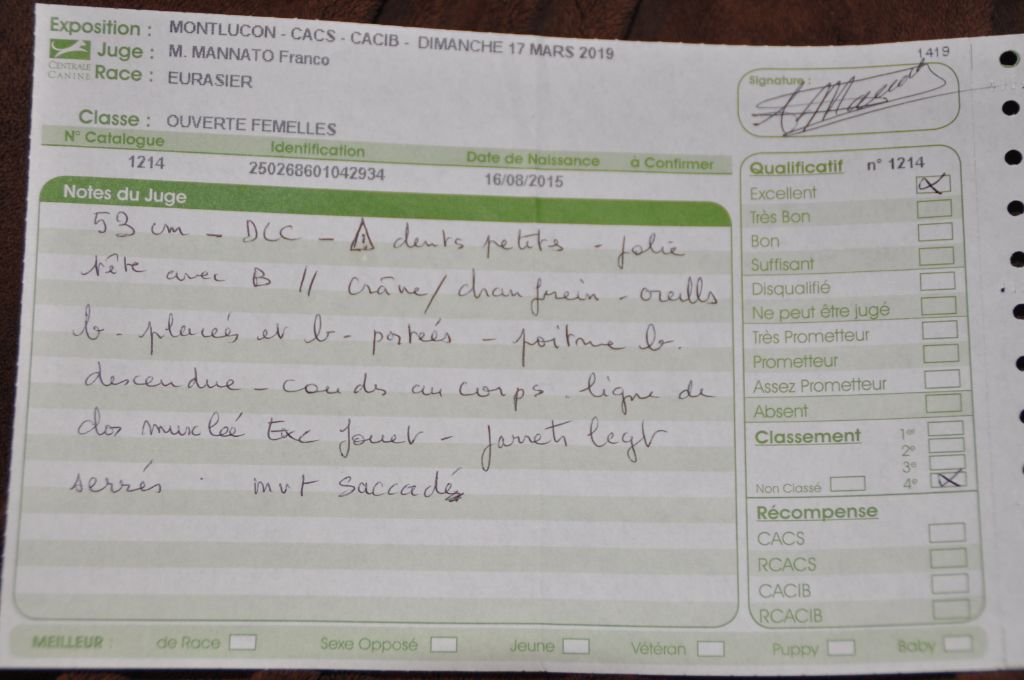 Exposition : MONTLUCON - CACS - CACIB - DIMANCHE 17 MARS 2019
CENTRALE CANINE
Juge : M. MANNATO Franco
Race : EURASIER
Classe : OUVERTE FEMELLES
N° Catalogue Identification Date de Naissance à Confirmer
1214 250268601042934 16/08/2015
Notes du Juge
53 cm - DCC - ⚠ dents petits - jolie
tête avec B // crâne/chanfrein - oreills
b. placeés et b. porteés - poitrine b.
descendue - couds au corps. ligne de
dos muscleé Exc fouet - jarrets legt
serrés . mvt saccadé
1419
Signature :
Qualificatif n° 1214
Excellent X
Très Bon
Bon
Suffisant
Disqualifié
Ne peut être jugé
Très Prometteur
Prometteur
Assez Prometteur
Absent
Classement 1er
2e
3e
Non Classé 4e X
Récompense
CACS
RCACS
CACIB
RCACIB
MEILLEUR : de Race Sexe Opposé Jeune Vétéran Puppy Baby